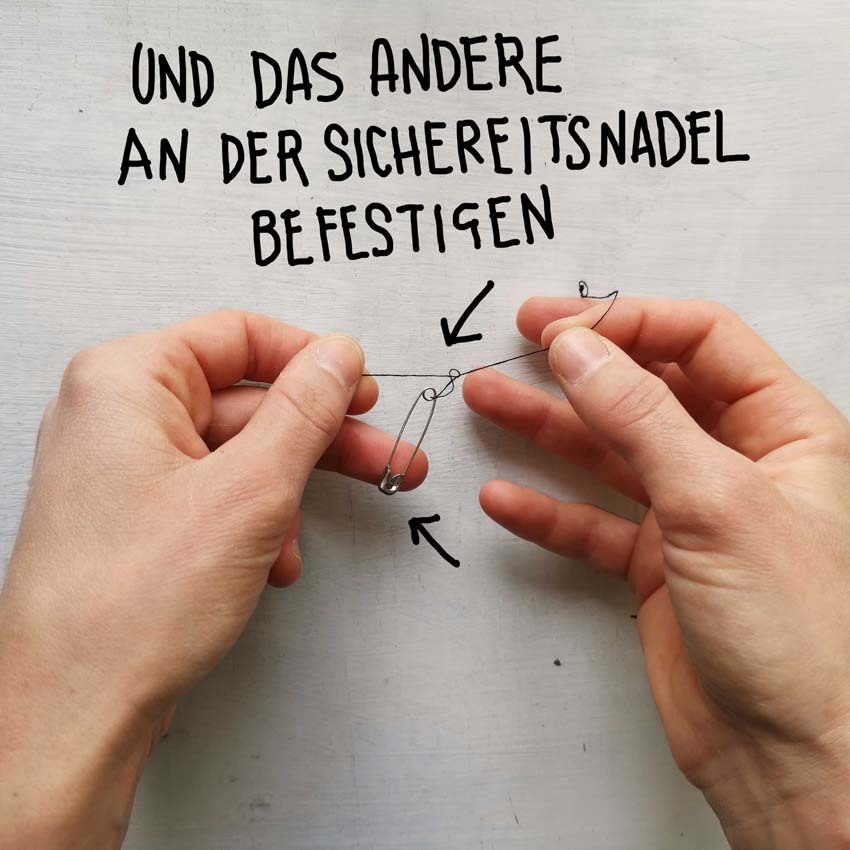 UND DAS ANDERE
AN DER SICHEREITSNADEL
BEFESTIGEN